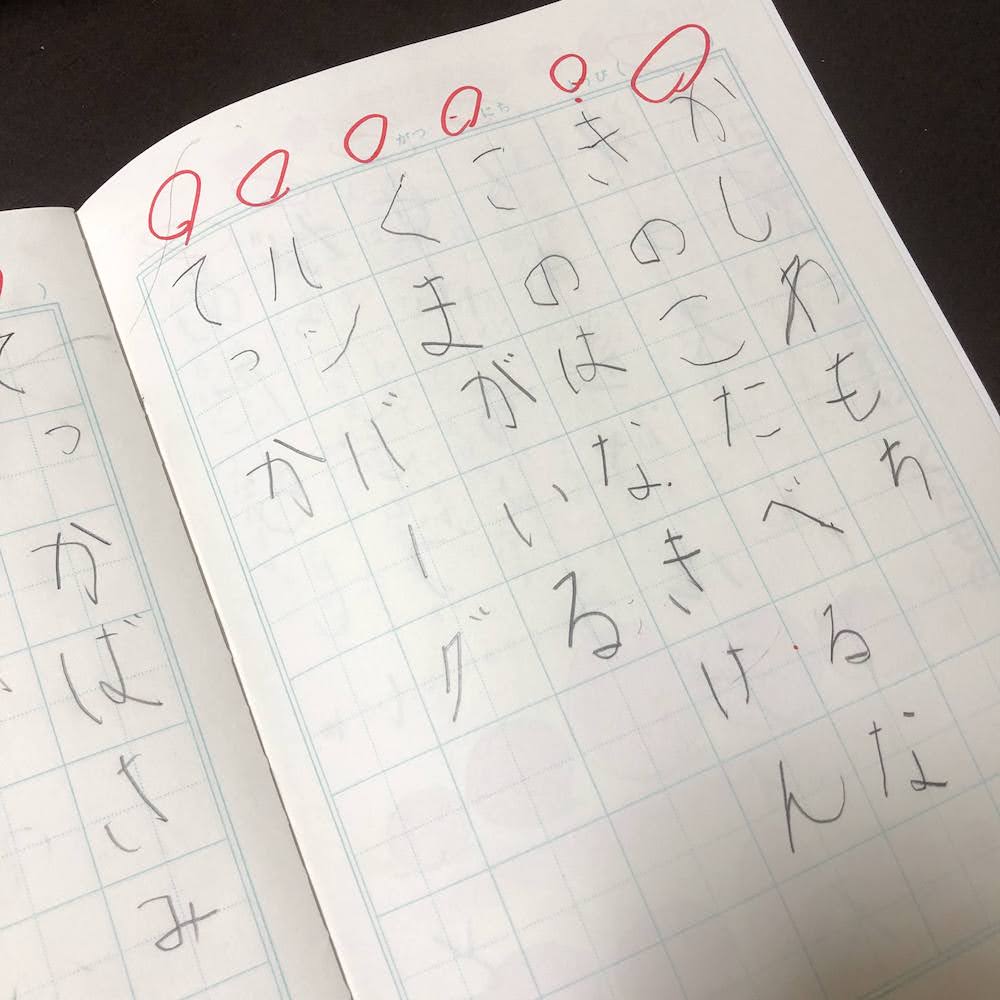 がつ にち ようび
かしわもち
きのこたべるな
このはなきけん
くまがいる
ハンバーグ
てっか
てっかばさみ